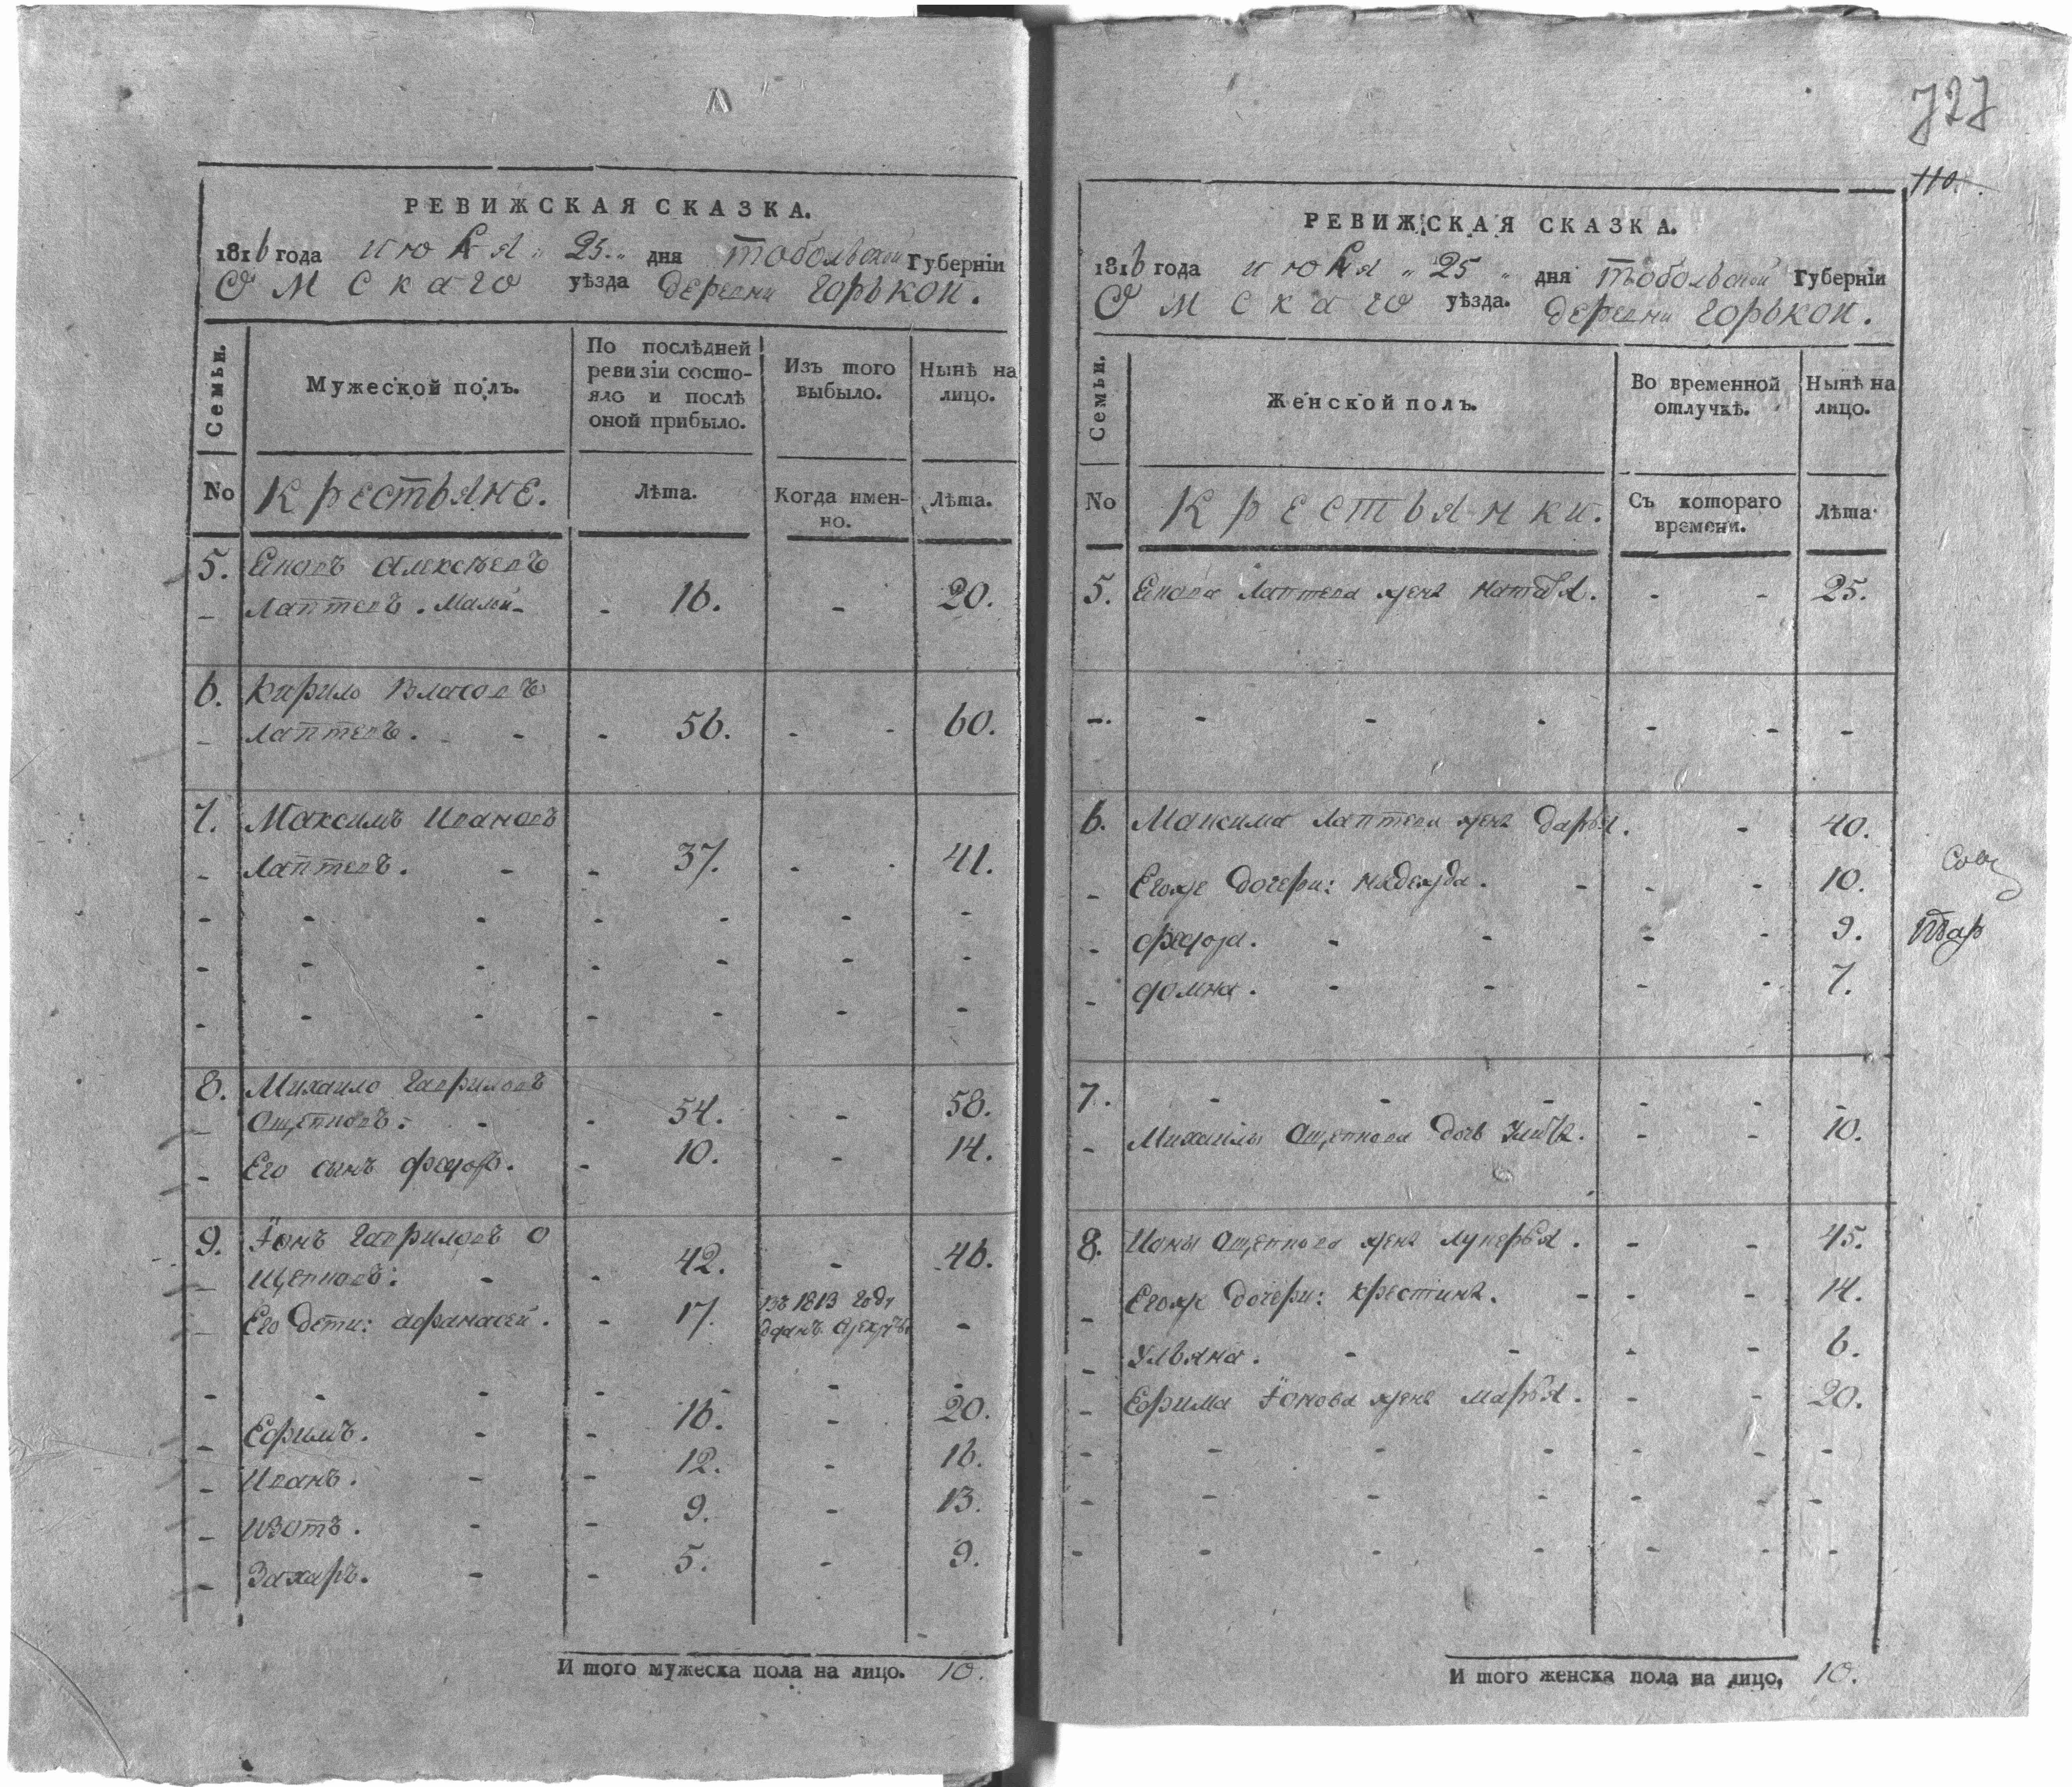 727
110.
РЕВИЖСКАЯ СКАЗКА.
1816 года июля 25. дня Тобольской Губерніи
Омскаго уѣзда деревни Горькой.
Семьи.
Мужеской полъ.
По послѣдней ревизіи состояло и послѣ оной прибыло.
Изъ того выбыло.
Нынѣ на лицо.
No Крестьяне. Лѣта. Когда имен-но. Лѣта.
5. Енохъ Алексѣевъ
Лаптевъ. Малой - 16. - 20.
6. Кирило Власовъ
Лаптевъ. - - 56. - - 60.
7. Максимъ Ивановъ
Лаптевъ. - - 37. - - 41.
8. Михаило Гавриловъ
Ощепковъ: - - 54. - 58.
Его сынъ Федоръ. - 10. - 14.
9. Іонъ Гавриловъ О
щепковъ: - - 42. - 46.
Его дети: Афанасей. - 17. Въ 1813 году отданъ въ рекруты -
Ефимъ. - - 16. - 20.
Иванъ. - - 12. - 16.
Изотъ. - - 9. - 13.
Захаръ. - - 5. - 9.
И того мужеска пола на лицо. 10.
РЕВИЖСКАЯ СКАЗКА.
1816 года июля 25 дня Тобольской Губерніи
Омскаго уѣзда. деревни Горькой.
Семьи.
Женской полъ.
Во временной отлучкѣ.
Нынѣ на лицо.
No Крестьянки. Съ котораго времени. Лѣта.
5. Лаптева жена Наталья. - - 25.
6. Максима Лаптева жена Дарья. - 40.
Егоже дочери: Надежда. - - - 10.
- - - - 9.
Домна. - - - - 7.
7. - - - - - -
Михаилы Ощепкова дочь - - 10.
8. Ионы Ощепкова жена Лукерья. - - 45.
Егоже дочери: Крестина. - - - 14.
Ульяна. - - - - 6.
Ефима Іонова жена Марья. - - 20.
И того женска пола на лицо, 10.